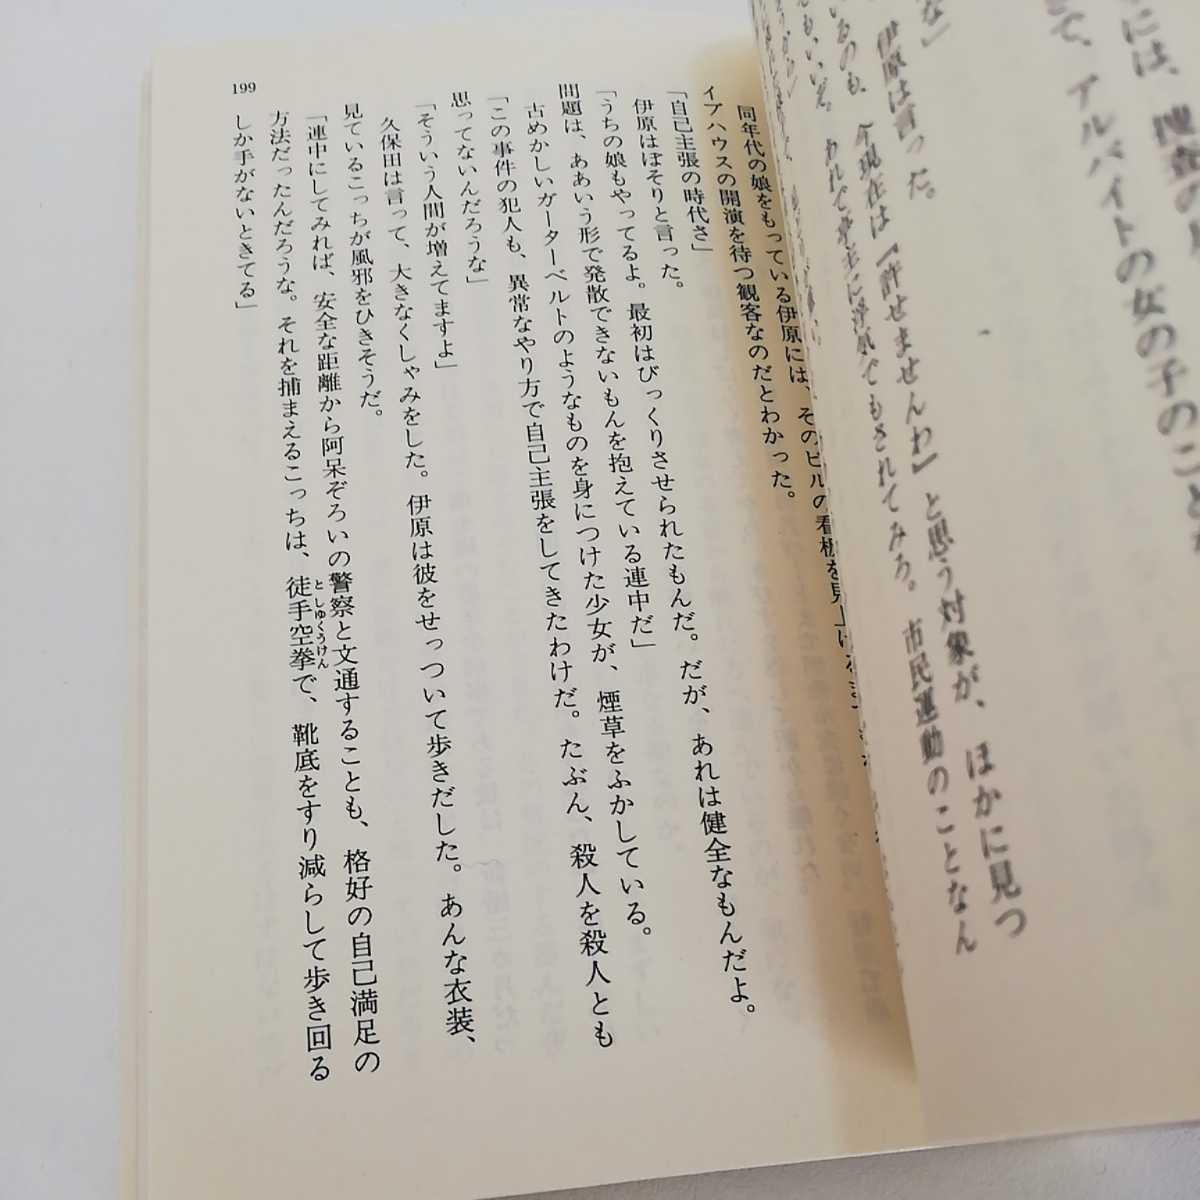 には、捜査の
て、アルバイトの女の子のことか
な」
伊原は言った。
今現在は『許せませんわ』と思う対象が、ほかに見つ
るのも、
もいいぞ。あれで亭主に浮気でもされてみろ。市民運動のことなん
同年代の娘をもっている伊原には、そのビルの看板を見上げる
イブハウスの開演を待つ観客なのだとわかった。
「自己主張の時代さ」
伊原はぼそりと言った。
「うちの娘もやってるよ。最初はびっくりさせられたもんだ。だが、あれは健全なもんだよ。
問題は、ああいう形で発散できないもんを抱えている連中だ」
古めかしいガーターベルトのようなものを身につけた少女が、煙草をふかしている。
「この事件の犯人も、異常なやり方で自己主張をしてきたわけだ。たぶん、殺人を殺人とも
思ってないんだろうな」
「そういう人間が増えてますよ」
久保田は言って、大きなくしゃみをした。伊原は彼をせっついて歩きだした。あんな衣装、
見ているこっちが風邪をひきそうだ。
「連中にしてみれば、安全な距離から阿呆ぞろいの警察と文通することも、格好の自己満足の
方法だったんだろうな。それを捕まえるこっちは、徒手空拳で、靴底をすり減らして歩き回る
としゅくうけん
しか手がないときてる」
199